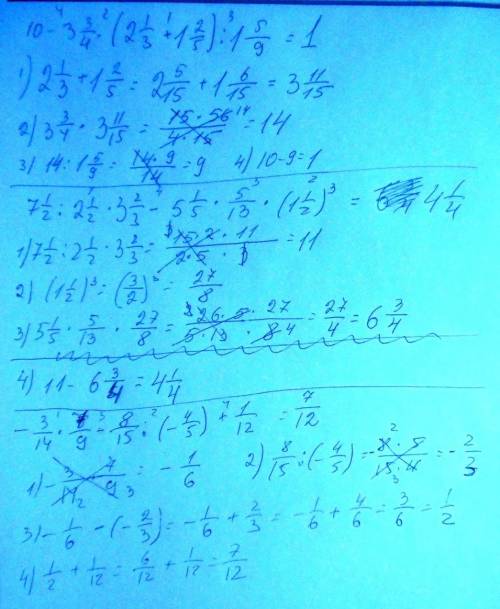 10 - 3 3/4 · (2 1/3 + 1 2/5) : 1 5/9 = 1
1) 2 1/3 + 1 2/5 = 2 5/15 + 1 6/15 = 3 11/15
2) 3 3/4 · 3 11/15 = 15·56/4·15 = 14
3) 14 : 1 5/9 = 14·9/14 = 9 4) 10-9=1
7 1/2 : 2 1/2 · 3 2/3 - 5 1/5 · 5/13 · (1 1/2)³ = 4 1/4
1) 7 1/2 : 2 1/2 · 3 2/3 = 15·2·11/2·5·3 = 11
2) (1 1/2)³ = (3/2)³ = 27/8
3) 5 1/5 · 5/13 · 27/8 = 26·5·27/5·13·8 = 27/4 = 6 3/4
4) 11 - 6 3/4 = 4 1/4
- 3/14 · 7/9 - 8/15 : (- 4/5) + 1/12 = 7/12
1) - 3·7/14·9 = - 1/6 2) 8/15 : (- 4/5) = - 8·5/15·4 = - 2/3
3) - 1/6 - (- 2/3) = - 1/6 + 2/3 = - 1/6 + 4/6 = 3/6 = 1/2
4) 1/2 + 1/12 = 6/12 + 1/12 = 7/12